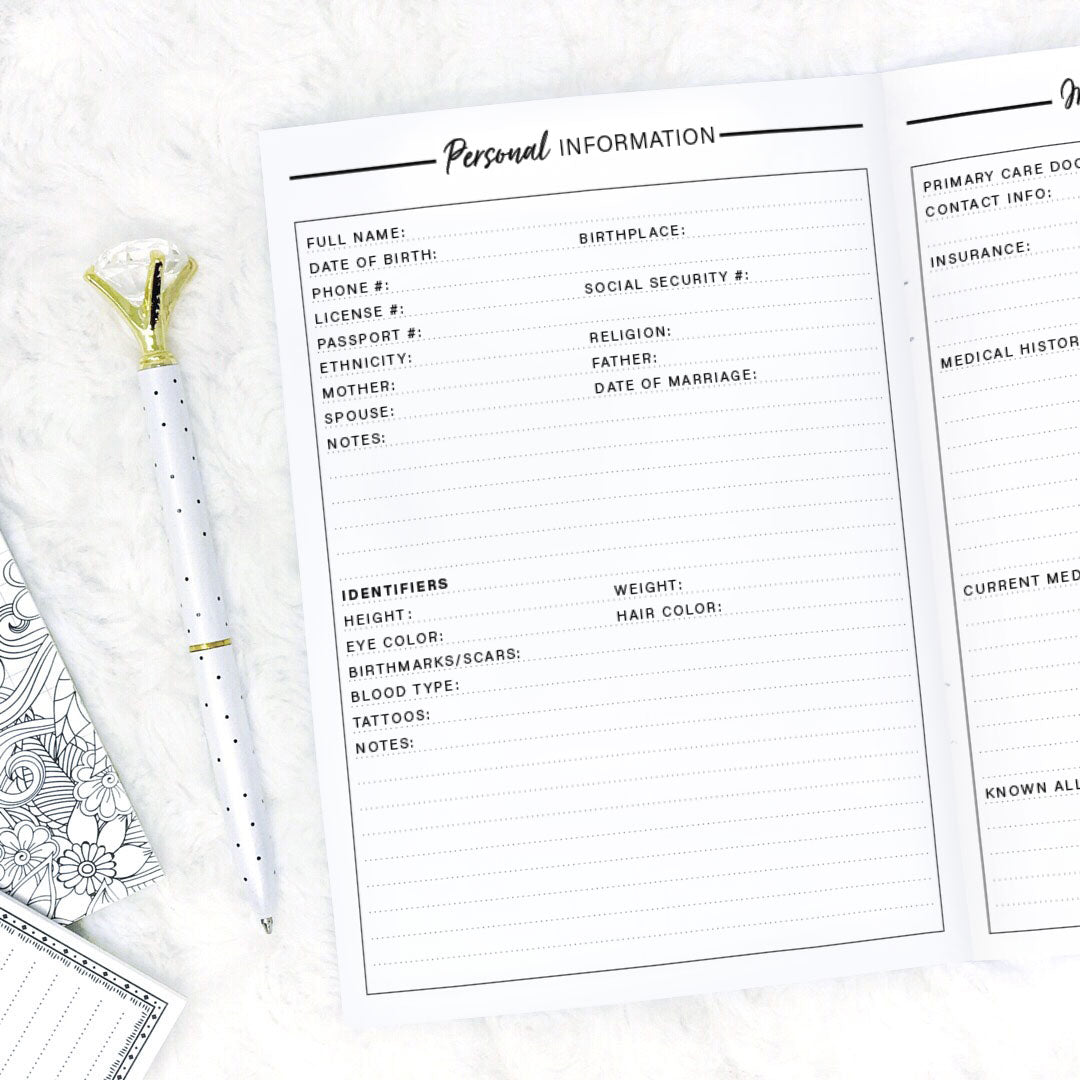 Personal INFORMATION
FULL NAME:
DATE OF BIRTH: BIRTHPLACE:
PHONE #:
LICENSE #: SOCIAL SECURITY #:
PASSPORT #:
ETHNICITY: RELIGION:
MOTHER: FATHER:
SPOUSE: DATE OF MARRIAGE:
NOTES:
IDENTIFIERS
HEIGHT: WEIGHT:
EYE COLOR: HAIR COLOR:
BIRTHMARKS/SCARS:
BLOOD TYPE:
TATTOOS:
NOTES:
PRIMARY CARE DOC
CONTACT INFO:
INSURANCE:
MEDICAL HISTOR
CURRENT MED
KNOWN ALL